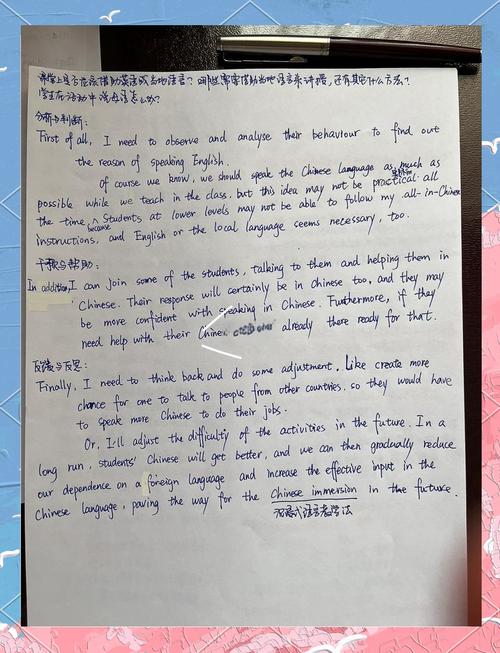 课堂上是否应该借助英语或当地语言？哪些需要借助当地语言来讲授，还有其它什么方法？
学生在活动中说母语怎么办？
分析与判断：
First of all, I need to observe and analyse their behaviour to find out
the reason of speaking English.
Of course we know, we should speak the Chinese language as much as
possible while we teach in the class, but this idea may not be practical all
the time, because students at lower levels may not be able to follow my all-in-Chinese
instructions, and English or the local language seems necessary, too.
干预与帮助：
In addition, I can join some of the students, talking to them and helping them in
Chinese. Their response will certainly be in Chinese too, and they may
be more confident with speaking in Chinese. Furthermore, if they
need help with their already there ready for that.
反馈与反思：
Finally, I need to think back and do some adjustment. Like create more
chance for one to talk to people from other countries, so they would have
to speak more Chinese to do their jobs.
Or, I'll adjust the difficulty of the activities in the future. In a
long run, students' Chinese will get better, and we can then gradually reduce
our dependence on a foreign language and increase the effective input in the
Chinese language, paving the way for the Chinese immersion in the future.
沉浸式语言教学法